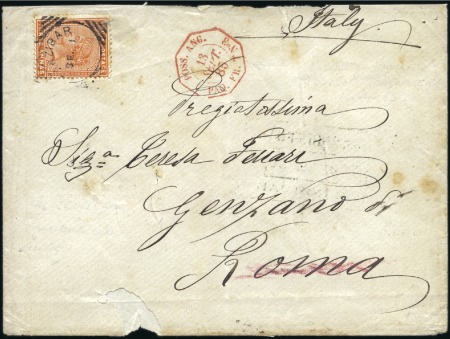 Italy.
POSS. ANG. 
13
PAQ. FR.
Pregiatissima
Sig.a Teresa Ferrari
Genzano di
Roma